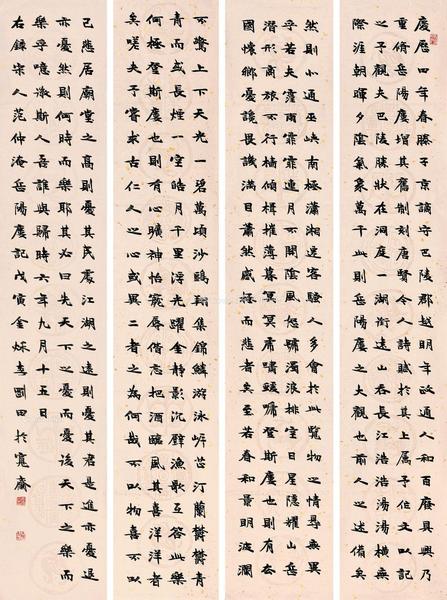 慶曆四年春滕子京謫守巴陵郡越明年政通人和百廢具興乃
重脩岳陽樓增其舊制刻唐賢今人詩賦於其上屬予作文以記
之予觀夫巴陵勝狀在洞庭一湖銜遠山吞長江浩浩湯湯橫無
際涯朝暉夕陰氣象萬千此則岳陽樓之大觀也前人之述備矣
然則北通巫峽南極瀟湘遷客騷人多會於此覽物之情得無異
乎若夫霪雨霏霏連月不開陰風怒號濁浪排空日星隱耀山岳
潛形商旅不行檣傾楫摧薄暮冥冥虎嘯猿啼登斯樓也則有去
國懷鄉憂讒畏譏滿目蕭然感極而悲者矣至若春和景明波瀾
不驚上下天光一碧萬頃沙鷗翔集錦鱗游泳岸芷汀蘭鬱鬱青
青而或長煙一空皓月千里浮光躍金靜影沉璧漁歌互答此樂
何極登斯樓也則有心曠神怡寵辱偕忘把酒臨風其喜洋洋者
矣嗟夫予嘗求古仁人之心或異二者之為何哉不以物喜不以
己悲居廟堂之高則憂其民處江湖之遠則憂其君是進亦憂退
亦憂然則何時而樂耶其必曰先天下之憂而憂後天下之樂而
樂乎噫微斯人吾誰與歸時六年九月十五日
右錄宋人范仲淹岳陽樓記戊寅金秋田於齋